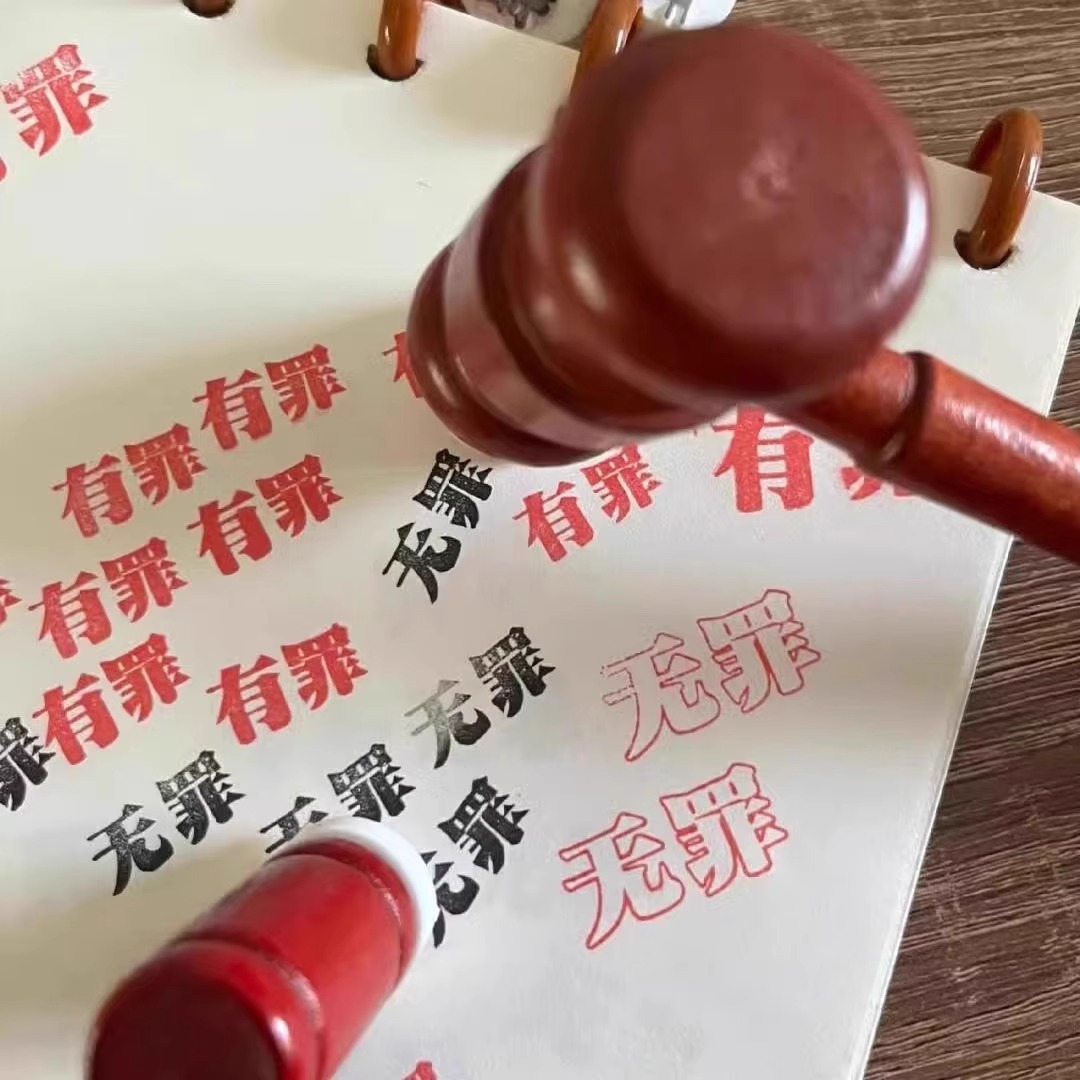 罪
有罪
有罪
有罪
有罪
有罪
有罪
有罪
有罪
无罪
有罪
无罪
无罪
罪
无罪
无罪
无罪
无罪